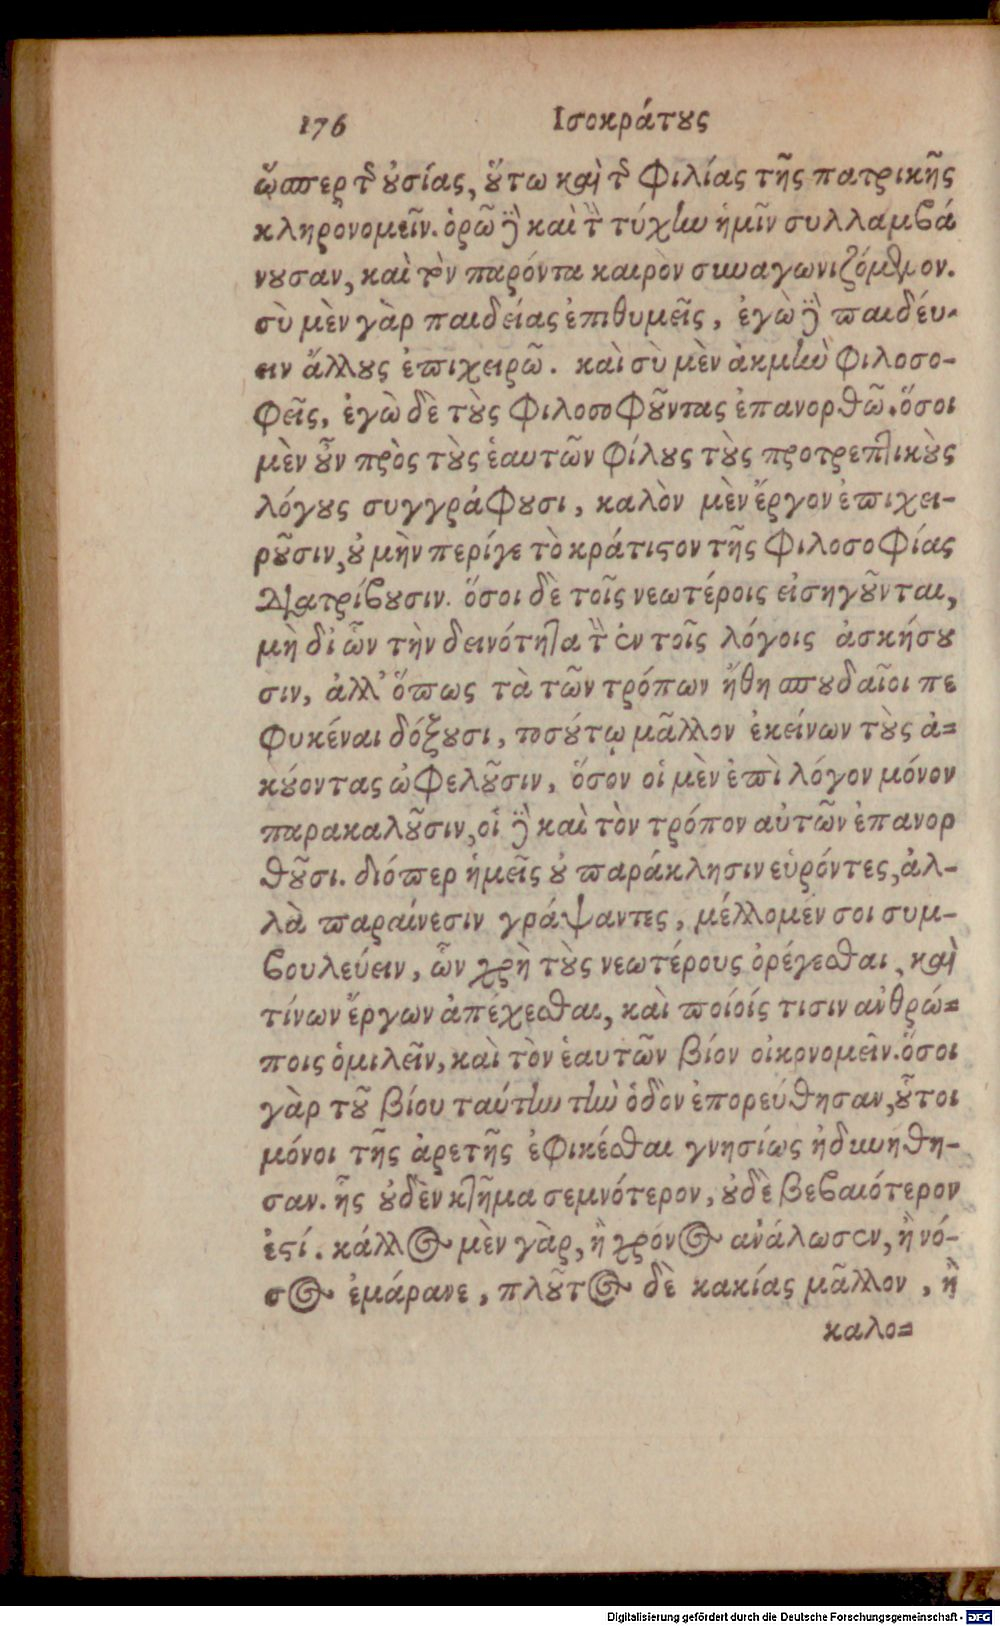 176 Ισοκράτȣς
ὥσπερ τῆς ȣ̓σίας, ȣ̔́τω καὶ τῆς φιλίας τῆς πατρικῆς
κληρονομεῖν. ὁρῶ δὲ καὶ τὴν τύχην ἡμῖν συλλαμβά
νȣσαν, καὶ τὸν παρόντα καιρὸν συναγωνιζόμενον.
σὺ μὲν γὰρ παιδείας ἐπιθυμεῖς, ἐγὼ δὲ παιδεύ-
ειν ἄλλȣς ἐπιχειρῶ. καὶ σὺ μὲν ἀκμὴν φιλοσο-
φεῖς, ἐγὼ δὲ τȣ̀ς φιλοσοφȣ͂ντας ἐπανορθῶ. ὅσοι
μὲν ȣ̓͂ν πρὸς τȣ̀ς ἑαυτῶν φίλȣς τȣ̀ς προτρεπτικȣ̀ς
λόγȣς συγγράφȣσι, καλὸν μὲν ἔργον ἐπιχει-
ρȣ͂σιν, ȣ̓ μὴν περίγε τὸ κράτιϛον τῆς φιλοσοφίας
διατρίβȣσιν. ὅσοι δὲ τοῖς νεωτέροις εἰσηγȣ͂νται,
μὴ δι' ὧν τὴν δεινότητα τὴν ἐν τοῖς λόγοις ἀσκήσȣ
σιν, ἀλλ' ὅπως τὰ τῶν τρόπων ἤθη σπȣδαῖοι πε
φυκέναι δόξȣσι, τοσȣ́τῳ μᾶλλον ἐκείνων τȣ̀ς ἀ-
κȣ́οντας ὠφελȣ͂σιν, ὅσον οἱ μὲν ἐπὶ λόγον μόνον
παρακαλȣ͂σιν, οἱ δὲ καὶ τὸν τρόπον αὐτῶν ἐπανορ
θȣ͂σι. διόπερ ἡμεῖς ȣ̓ παράκλησιν εὑρόντες, ἀλ-
λὰ παραίνεσιν γράψαντες, μέλλομέν σοι συμ-
βουλεύειν, ὧν χρὴ τȣ̀ς νεωτέρους ὀρέγεσθαι, καὶ
τίνων ἔργων ἀπέχεσθαι, καὶ ποίοίς τισιν ἀνθρώ-
ποις ὁμιλεῖν, καὶ τὸν ἑαυτῶν βίον οἰκονομεῖν. ὅσοι
γὰρ τȣ͂ βίου ταύτην τὴν ὁδὸν ἐπορεύθησαν, ȣ̔͂τοι
μόνοι τῆς ἀρετῆς ἐφικέσθαι γνησίως ἠδυνήθη-
σαν. ἧς ȣ̓δὲν κτῆμα σεμνότερον, ȣ̓δὲ βεβαιότερον
ἐϛί. κάλλος μὲν γὰρ, ἢ χρόνος ἀνάλωσεν, ἢ νό-
σος ἐμάρανε, πλȣ͂τος δὲ κακίας μᾶλλον, ἢ
καλο-
Digitalisierung gefördert durch die Deutsche Forschungsgemeinschaft - DFG